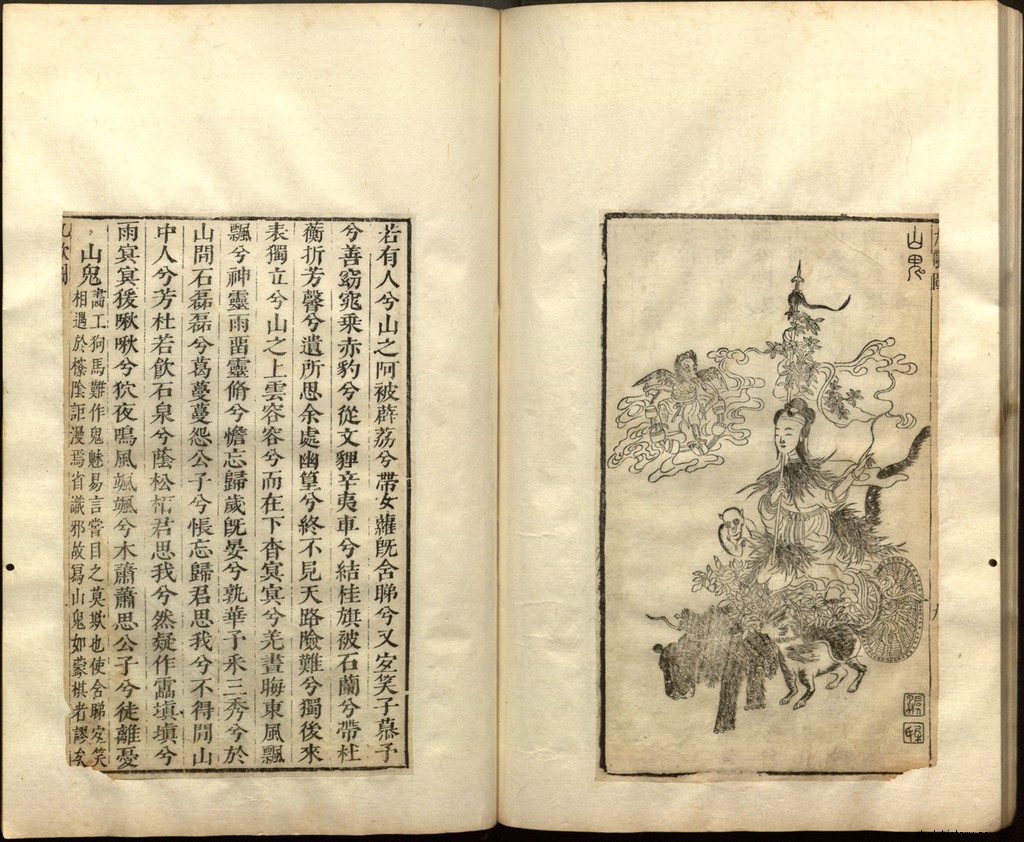 山鬼
若有人兮山之阿被薜荔兮帶女蘿既含睇兮又宐笑子慕予
兮善窈窕乘赤豹兮從文貍辛夷車兮結桂旗被石蘭兮帶杜
蘅折芳馨兮遺所思余處幽篁兮終不見天路險難兮獨後來
表獨立兮山之上雲容容兮而在下杳冥冥兮羌晝晦東風飄
飄兮神靈雨畱靈脩兮憺忘歸歲旣晏兮孰華予采三秀兮於
山間石磊磊兮葛蔓蔓怨公子兮悵忘歸君思我兮不得閒山
中人兮芳杜若飲石泉兮蔭松栢君思我兮然疑作靁塡塡兮
雨冥冥猨啾啾兮狖夜鳴風颯颯兮木蕭蕭思公子兮徒離憂
山鬼
畫工狗馬難作鬼魅易言嘗目之莫欺也使含睇宐笑
相遇於陰詎漫焉省識邪故寫山鬼如蒙棋者謬矣
九歌圖